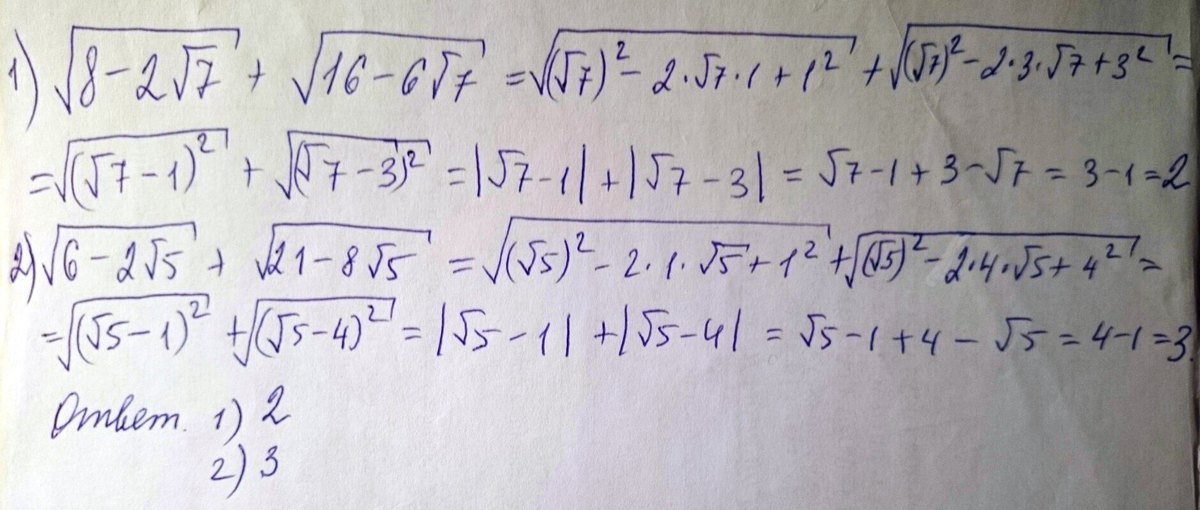 1) √(8-2√7) + √(16-6√7) = √((√7)²-2·√7·1+1²) + √((√7)²-2·3·√7+3²) =
= √((√7-1)²) + √((√7-3)²) = |√7-1| + |√7-3| = √7-1+3-√7 = 3-1=2
2) √(6-2√5) + √(21-8√5) = √((√5)²-2·1·√5+1²) + √((√5)²-2·4·√5+4²) =
= √((√5-1)²) + √((√5-4)²) = |√5-1| + |√5-4| = √5-1+4-√5 = 4-1=3.
Ответ. 1) 2
2) 3